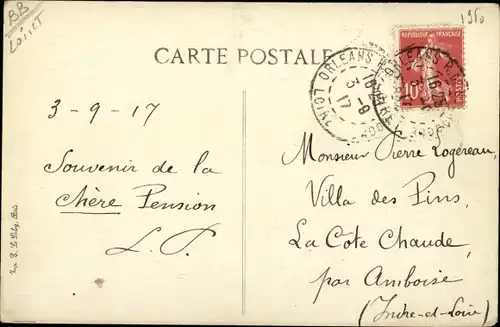 BB
LOIRET
CARTE POSTALE
REPUBLIQUE FRANÇAISE
10
POSTES
ORLEANS R.
LOIRET
16
3-9
17
3-9-17
Souvenir de la
chère Pension
L. P.
Monsieur Pierre Rogereau,
Villa des Pins,
La Côte Chaude,
par Amboise
(Indre-et-Loire)